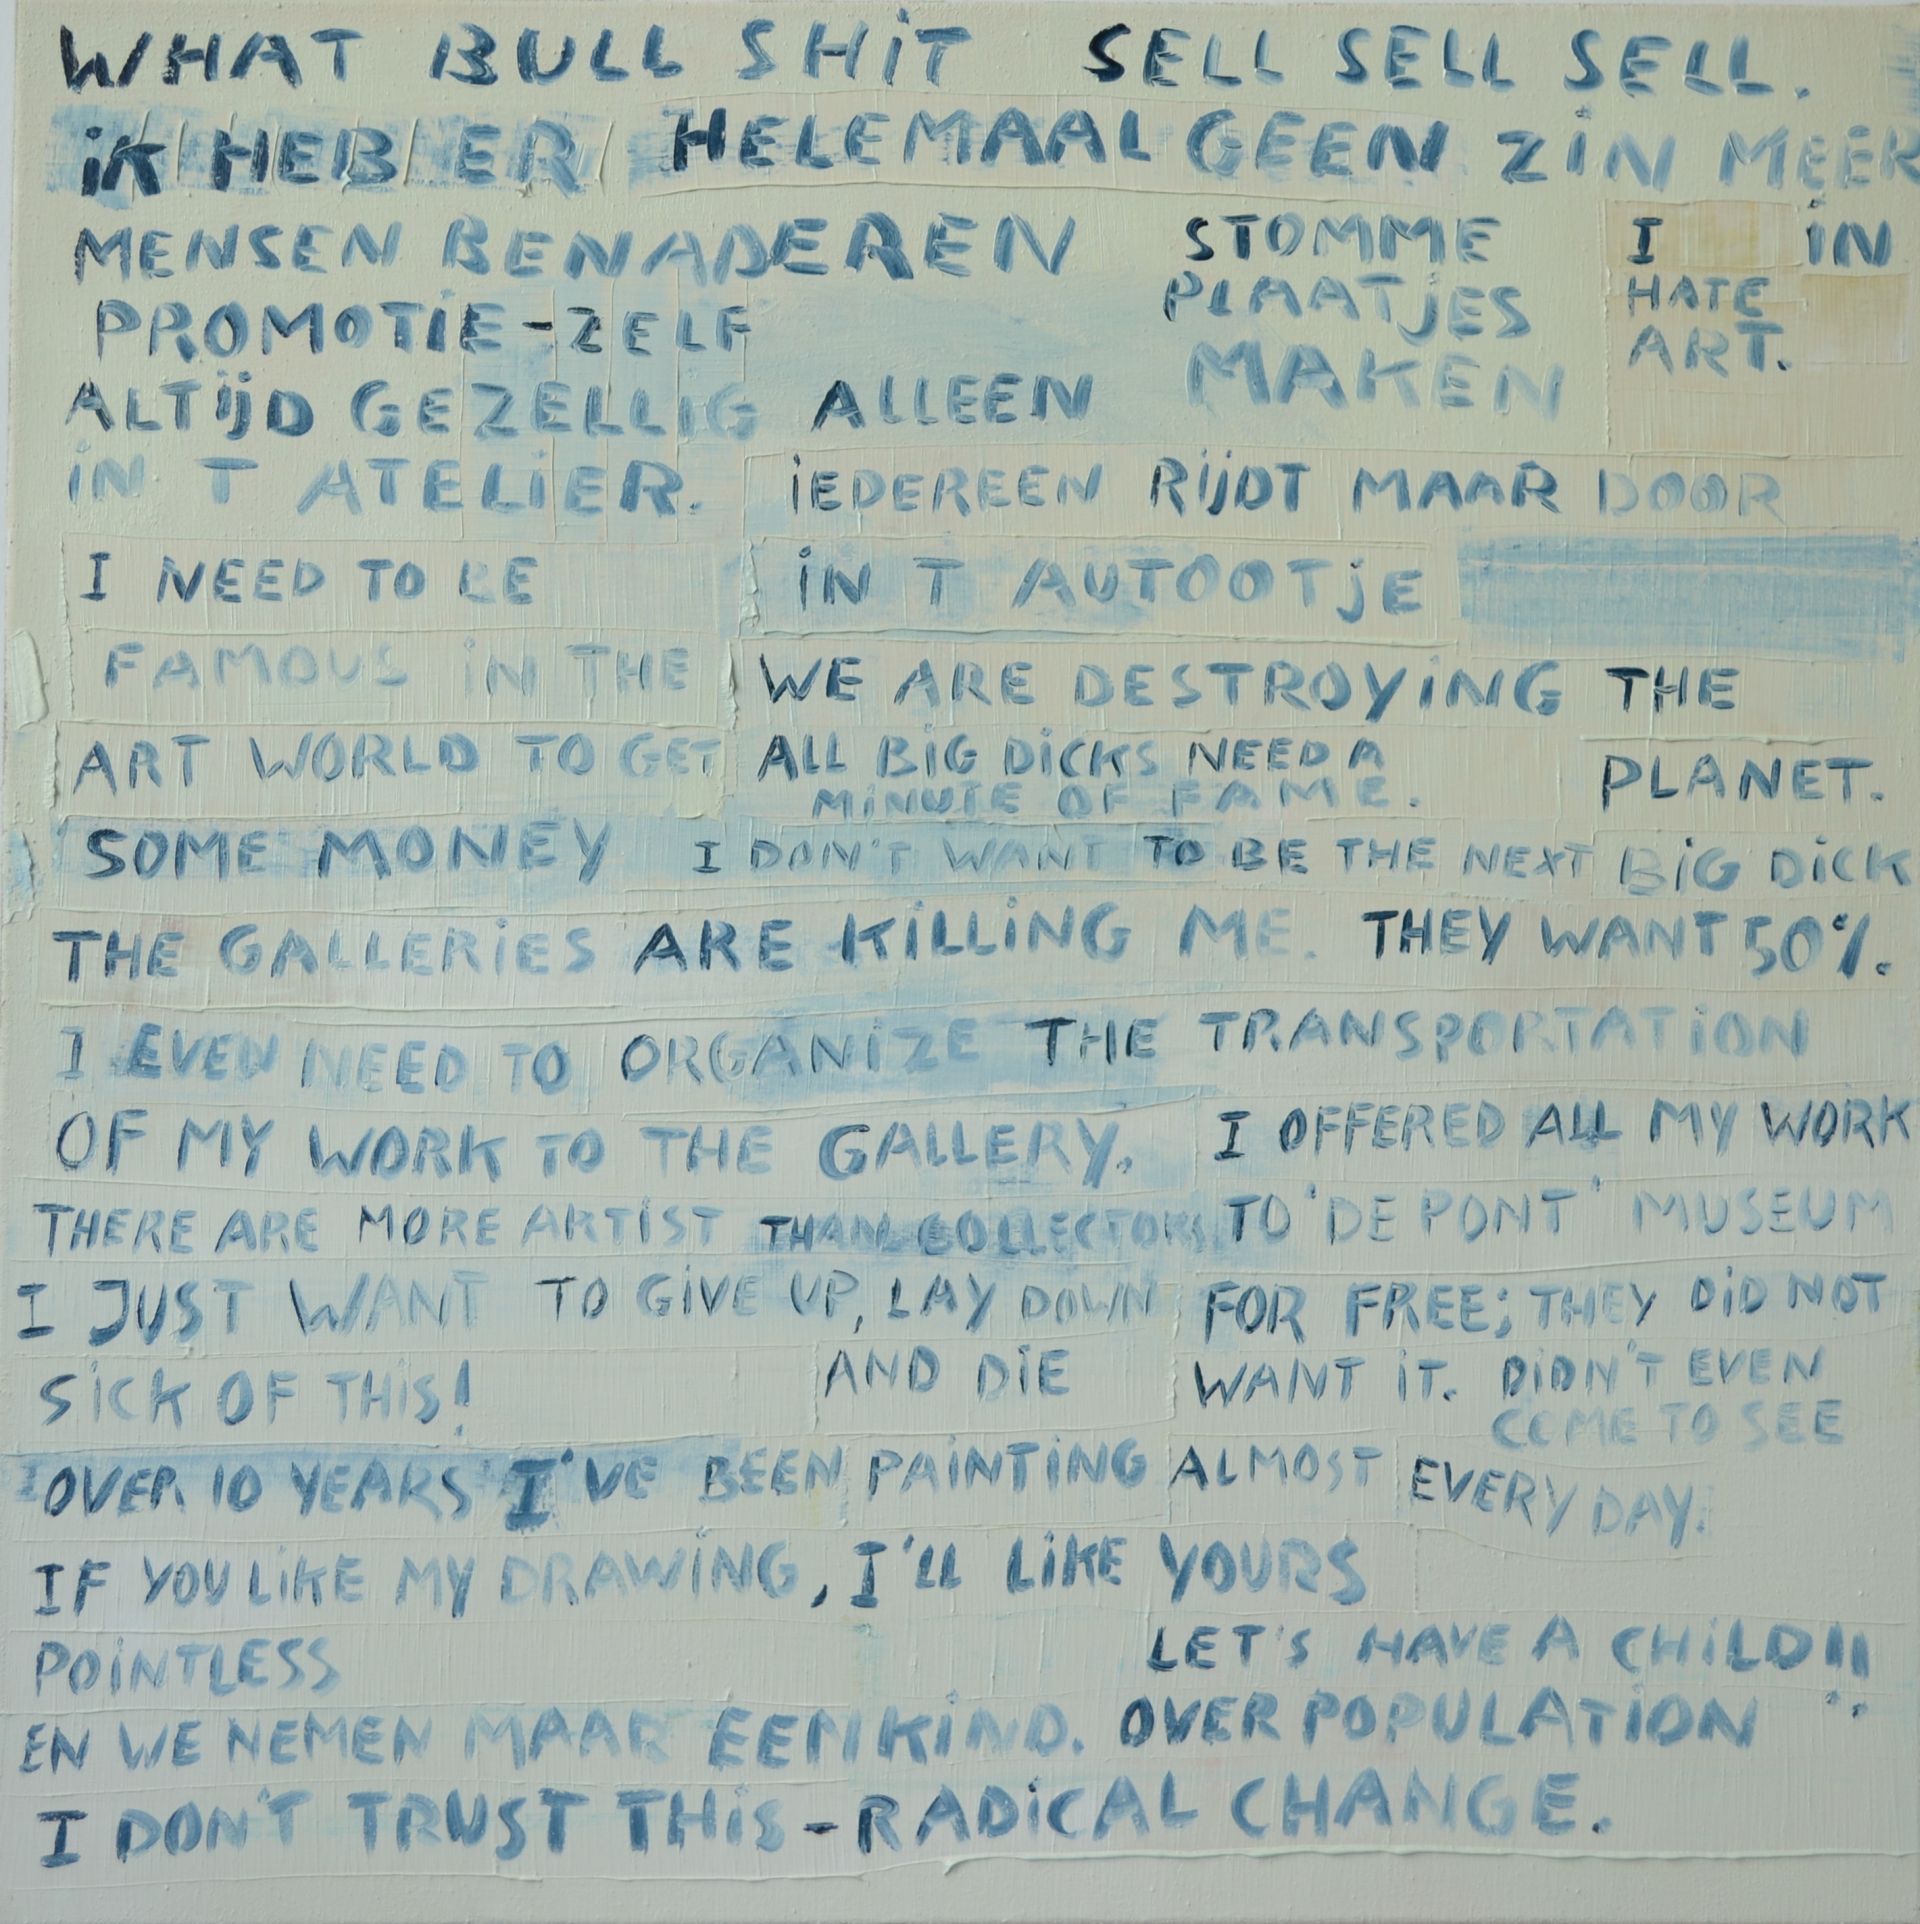 WHAT BULL SHIT SELL SELL SELL.
iK HEB ER HELEMAAL GEEN ZiN MEER
MENSEN BENADEREN
STOMME
PLAATJES
MAKEN
I
HATE
ART.
iN
PROMOTIE-ZELF
ALTIJD GEZELLIG ALLEEN
iN T ATELiER.
iEDEREEN RIJDT MAAR DOOR
iN T AUTOOTjE
I NEED TO BE
FAMOUS iN THE
ART WORLD TO GET
SOME MONEY
WE ARE DESTROYiNG THE
PLANET.
ALL BiG DiCKS NEED A
MiNUTE OF FAME.
I DON'T WANT TO BE THE NEXT BiG DiCK
THE GALLERiES ARE KiLLiNG ME. THEY WANT 50%.
I EVEN NEED TO ORGANiZE THE TRANSPORTATiON
OF MY WORK TO THE GALLERY.
I OFFERED ALL MY WORK
TO 'DE PONT' MUSEUM
FOR FREE; THEY DiD NOT
WANT iT. DiDN'T EVEN
COME TO SEE
THERE ARE MORE ARTiST THAN COLLECTORS
I JUST WANT TO GiVE UP, LAY DOWN
AND DiE
SiCK OF THiS!
OVER 10 YEARS I'VE BEEN PAiNTiNG ALMOST EVERY DAY.
IF YOU LiKE MY DRAWiNG, I'LL LiKE YOURS
POiNTLESS
LET'S HAVE A CHiLD!!
EN WE NEMEN MAAR EEN KiND. OVERPOPULATiON
I DON'T TRUST THiS - RADiCAL CHANGE.